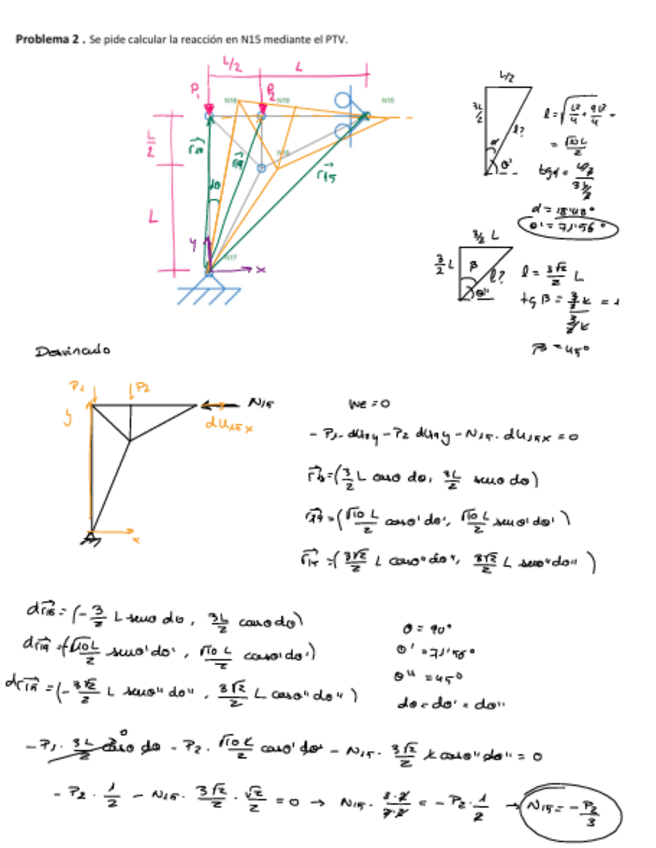 Problema 2 . Se pide calcular la reacción en N15 mediante el PTV.
L/2 L
P1 P2
N18 N19 N15
N16
L/2
L
r18 r19 r15
dθ
y
x
N17
L/2
3L/2
l?
α
θ'
l = √(L²/4 + 9L²/4) =
= √10 L/2
tgα = L/2 / 3L/2
α = 18'43°
θ' = 71'56°
3/2 L
3/2 L
β
l?
θ''
l = 3√2/2 L
tg β = 3/2 L / 3/2 L = 1
β = 45°
Desvinculo
P1 P2
y
N15
du15x
x
We = 0
- P1 · du18y - P2 du19y - N15 · du15x = 0
r18 = (3/2 L cosθ dθ, 3L/2 senθ dθ)
r19 = (√10 L/2 cosθ' dθ', √10 L/2 senθ' dθ')
r15 = (3√2/2 L cosθ'' dθ'', 3√2/2 L senθ'' dθ'')
dr18 = (-3/2 L senθ dθ, 3L/2 cosθ dθ)
dr19 = (-√10 L/2 senθ' dθ', √10 L/2 cosθ' dθ')
dr15 = (-3√2/2 L senθ'' dθ'', 3√2/2 L cosθ'' dθ'')
θ = 90°
θ' = 71'56°
θ'' = 45°
dθ = dθ' = dθ''
- P1 · 3L/2 cosθ dθ - P2 · √10 L/2 cosθ' dθ' - N15 · 3√2/2 L cosθ'' dθ'' = 0
0
- P2 · 1/2 - N15 · 3√2/2 · √2/2 = 0 → N15 · 3·2/2·2 = - P2 · 1/2 → N15 = - P2/3